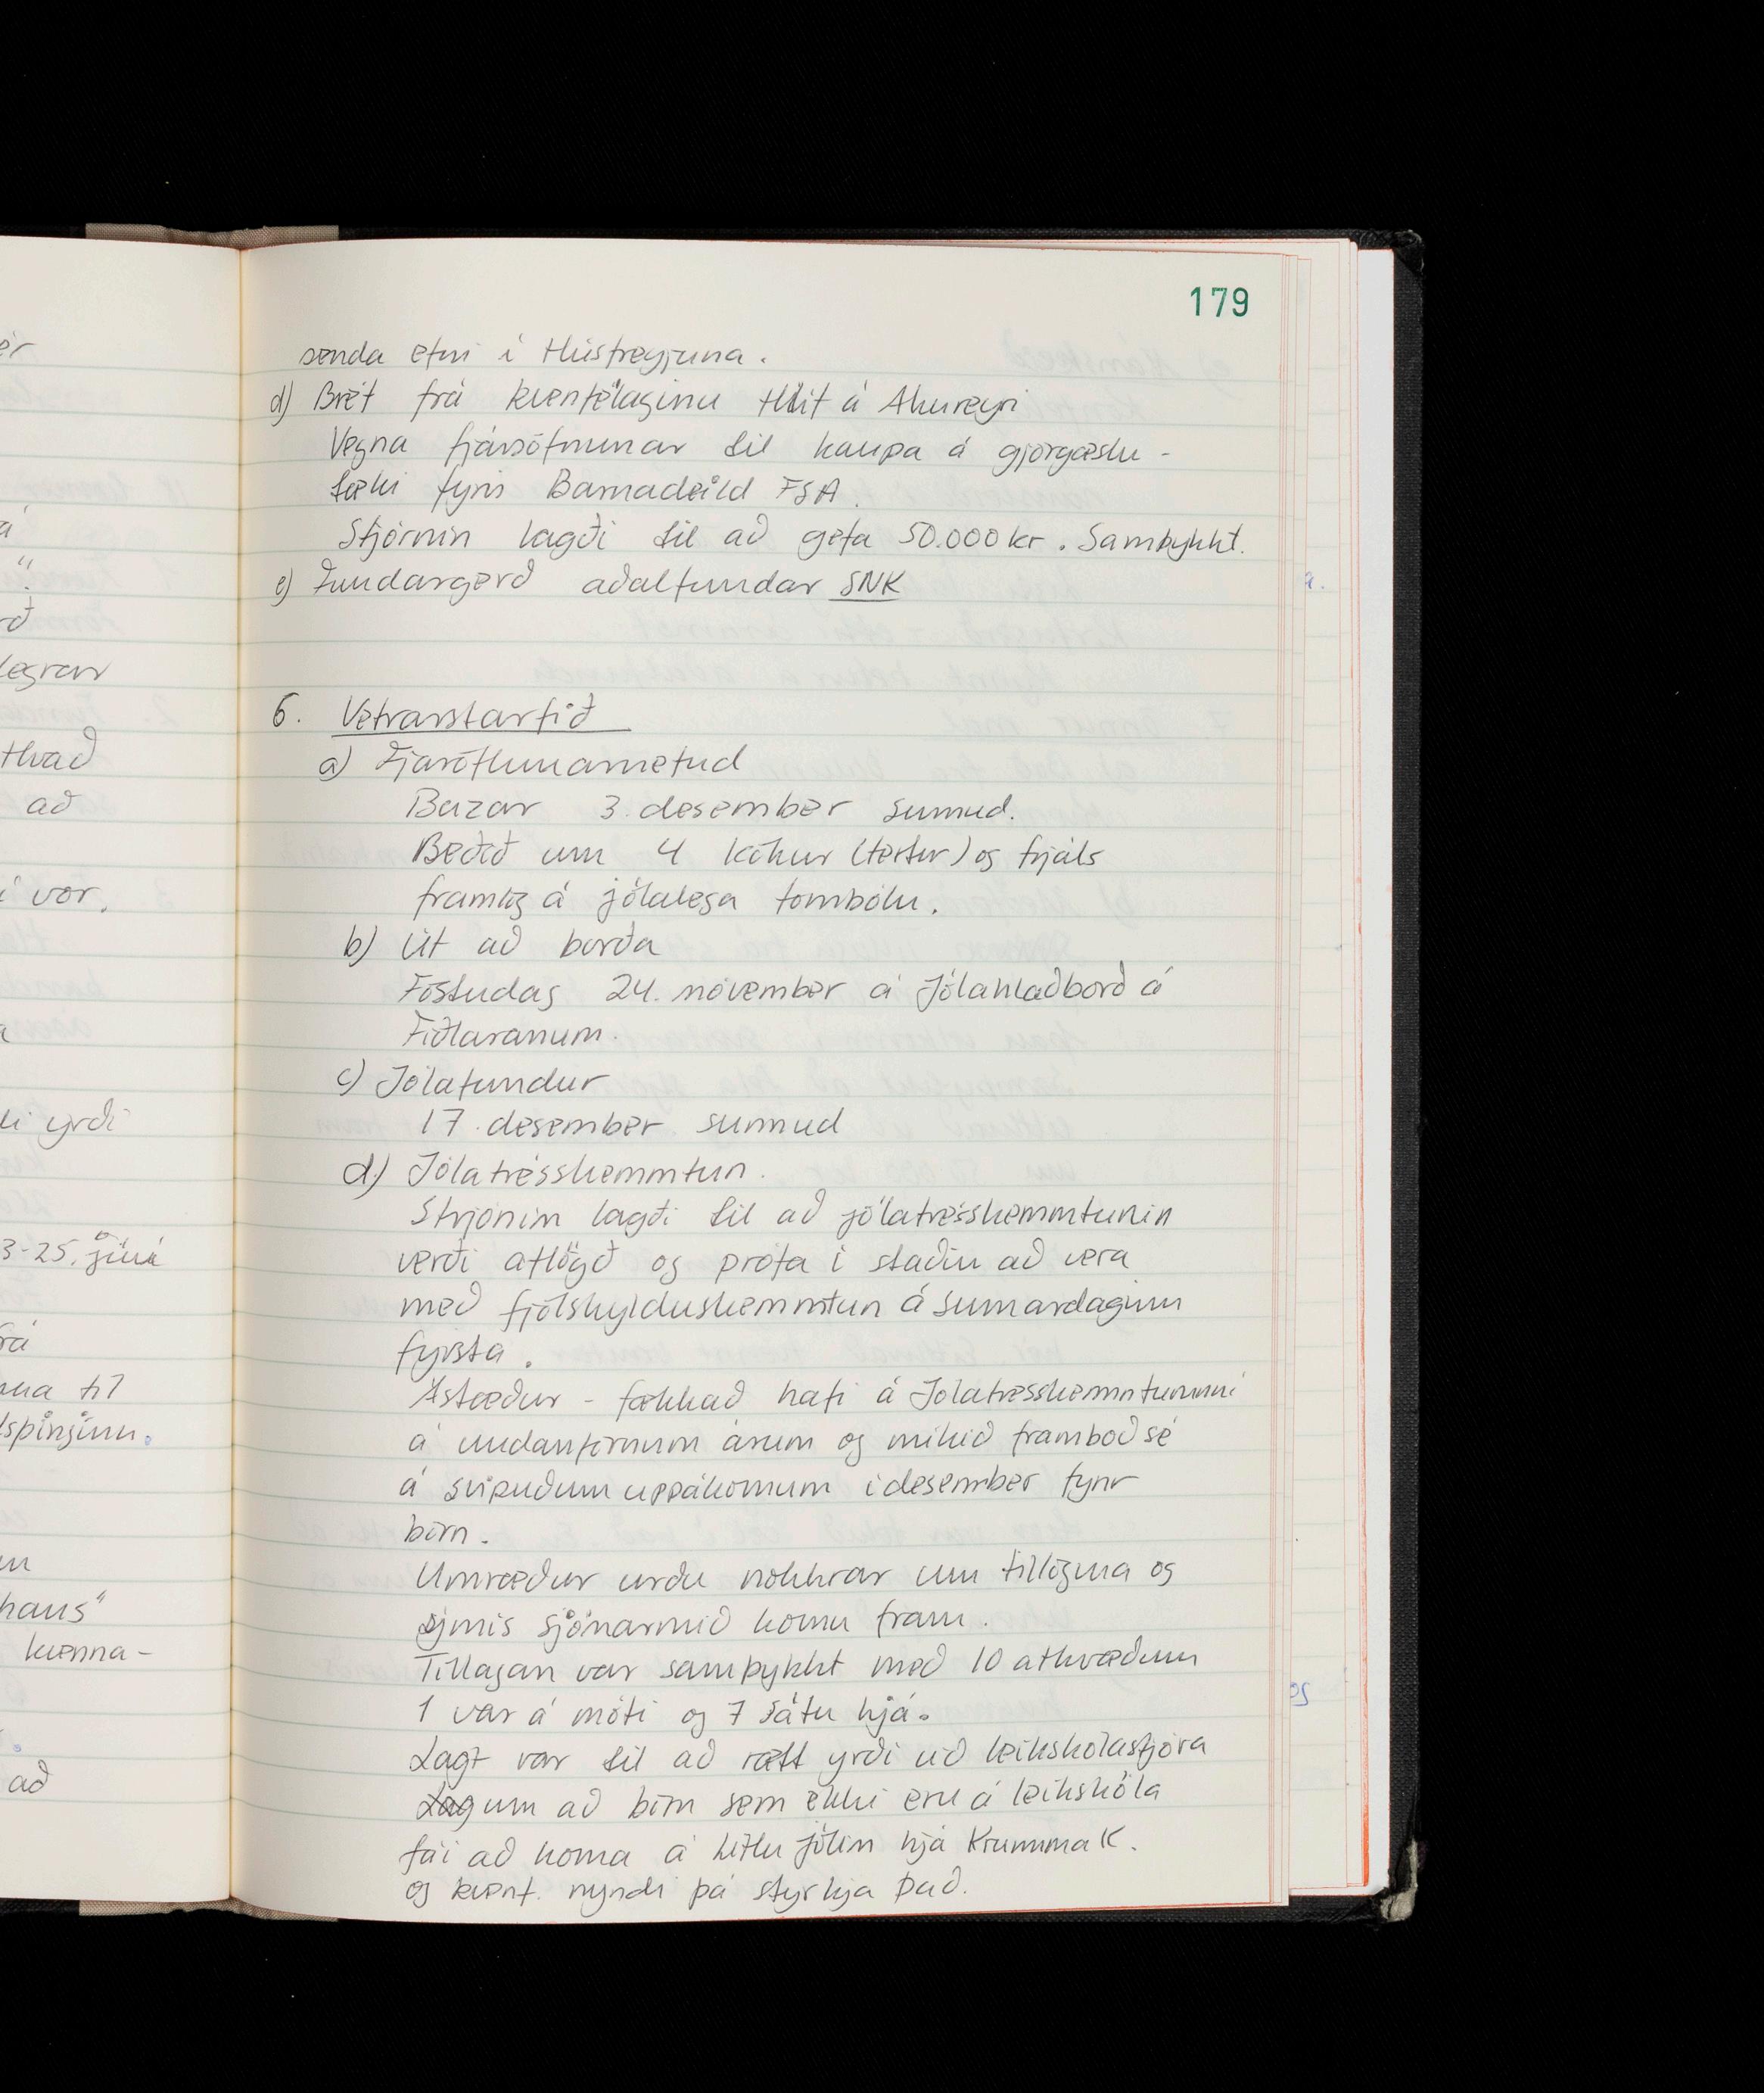 179
senda efni í Húsfreyjuna.
d) Bréf frá kvenfélaginu Hlíf á Akureyri
Vegna fjársöfnunar til kaupa á gjörgæslu-
tæki fyrir Barnadeild FSA.
Stjórnin lagði til að gefa 50.000 kr. Samþykkt.
e) Fundargerð aðalfundar SNK
6. Vetrarstarfið
a) Fjaröflunarnefnd
Bazar 3. desember sunnud.
Beðið um 4 kökur (tertur) og frjáls
framlög á jólalega tombólu.
b) Út að borða
Föstudag 24. nóvember á Jólahlaðborð á
Fiðlaranum.
c) Jólafundur
17. desember sunnud
d) Jólatrésskemmtun.
Strjónin lagði til að jólatrésskemmtunin
verði aflögð og prófa í staðin að vera
með fjölskylduskemmtun á sumardaginn
fyrsta.
Ástæður - fækkað hafi á Jólatrésskemmtuninni
á undanförnum árum og mikið framboð sé
á svipuðum uppákomum í desember fyrir
börn.
Umræður urðu nokkrar um tillöguna og
ýmis sjónarmið komu fram.
Tillagan var samþykkt með 10 atkvæðum
1 var á móti og 7 sátu hjá.
Lagt var til að rætt yrði við leikskólastjóra
um að börn sem ekki eru á leikskóla
fái að koma á litlu jólin hjá Krumma K.
og kvenf. myndi þá styrkja það.
ér
á
"
rð
legrar
thvað
að
í vor.
di yrði
3-25. júní
frá
til
spinginn.
haus"
kvenna-
að
a.
og